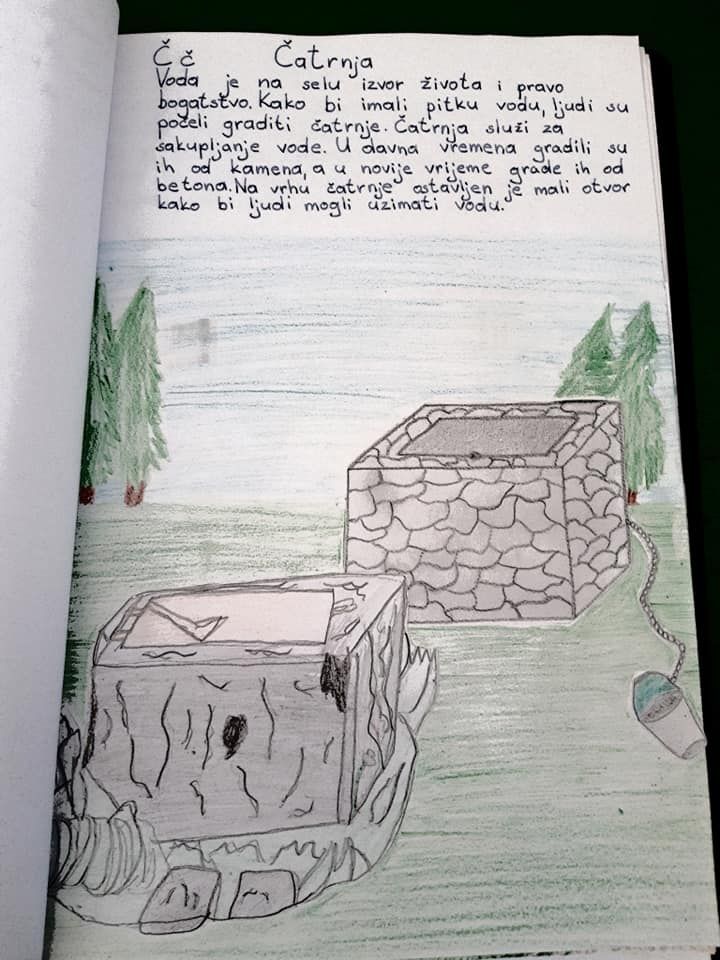 Č č Čatrnja
Voda je na selu izvor života i pravo
bogatstvo. Kako bi imali pitku vodu, ljudi su
počeli graditi čatrnje. Čatrnja služi za
sakupljanje vode. U davna vremena gradili su
ih od kamena, a u novije vrijeme grade ih od
betona. Na vrhu čatrnje ostavljen je mali otvor
kako bi ljudi mogli uzimati vodu.